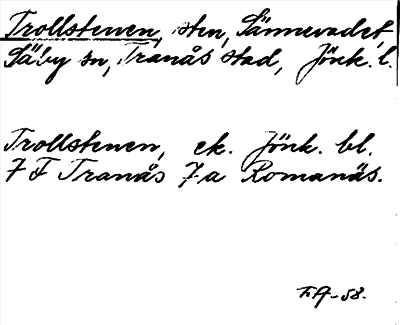 Trollstenen, sten, Sännevadet,
Säby sn, Tranås stad, Jönk. l.
Trollstenen, ek. Jönk. bl.
7 F Tranås 7a Romanäs.
FA-58.